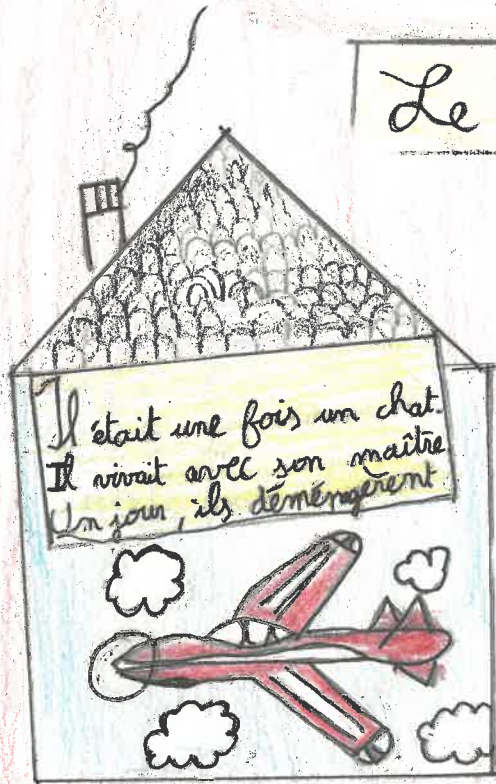 Le
Il était une fois un chat.
Il vivait avec son maître
Un jour, ils déméngèrent